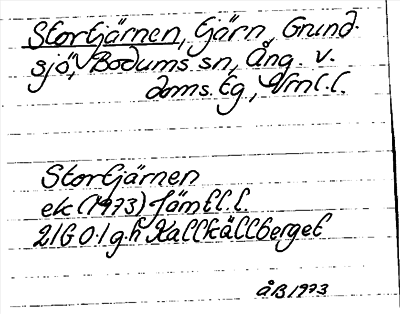 Stortjärnen, tjärn, Grund-
sjö, Bodums sn, Ång. v.
doms.tg., Vrnl.l.
Stortjärnen
ek (1973) Jämtl.l.
21G 0-1 g.h Kallkällberget
åB 1973